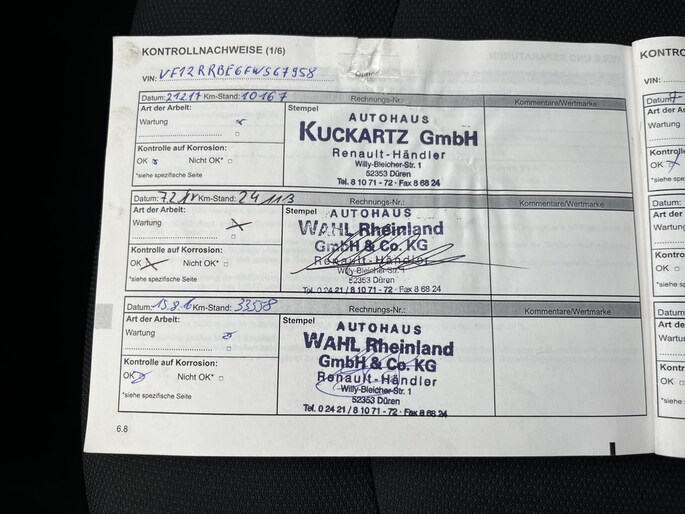 KONTROLLNACHWEISE (1/6)
VIN: VF12RRBE6FWSG7958
Datum: 21217 Km-Stand: 10167 Rechnungs-Nr.: Kommentare/Wertmarke
Art der Arbeit: Stempel
Wartung
Kontrolle auf Korrosion:
OK Nicht OK*
*siehe spezifische Seite
AUTOHAUS
KUCKARTZ GmbH
Renault-Händler
Willy-Bleicher-Str. 1
52353 Düren
Tel. 8 10 71 - 72 · Fax 8 68 24
Datum: Km-Stand: 24113 Rechnungs-Nr.: Kommentare/Wertmarke
Art der Arbeit: Stempel
Wartung
Kontrolle auf Korrosion:
OK Nicht OK*
*siehe spezifische Seite
AUTOHAUS
WAHL Rheinland
GmbH & Co. KG
Renault-Händler
Willy-Bleicher-Str. 1
52353 Düren
Tel. 0 24 21 / 8 10 71 - 72 · Fax 8 68 24
Datum: Km-Stand: 33558 Rechnungs-Nr.: Kommentare/Wertmarke
Art der Arbeit: Stempel
Wartung
Kontrolle auf Korrosion:
OK Nicht OK*
*siehe spezifische Seite
AUTOHAUS
WAHL Rheinland
GmbH & Co. KG
Renault-Händler
Willy-Bleicher-Str. 1
52353 Düren
Tel. 0 24 21 / 8 10 71 - 72 · Fax 8 68 24
6.8
KONTRO
VIN:
Datum:
Art der A
Wartung
Kontrolle
OK
*siehe spe
Datum:
Art der A
Wartung
Kontro
OK
*siehe s
Datum
Art de
Wartu
Kontr
OK
*siehe